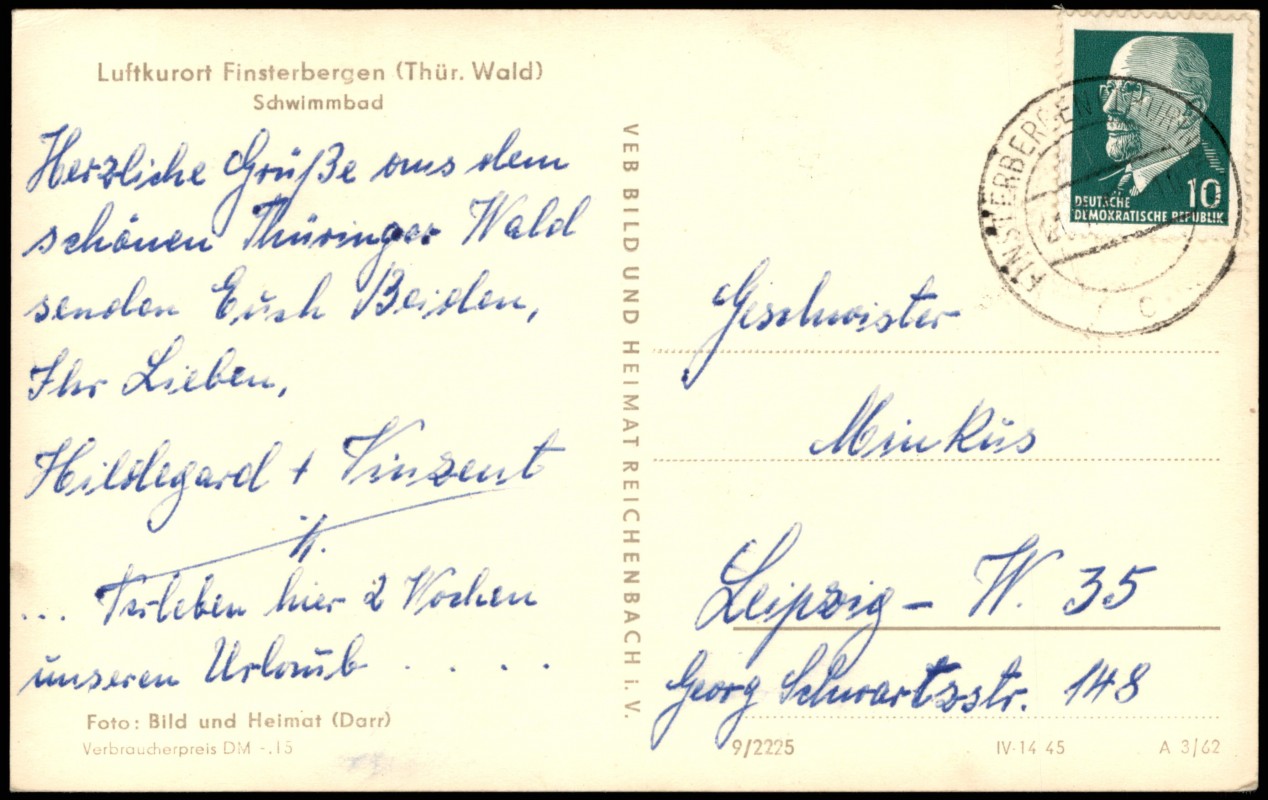 Luftkurort Finsterbergen (Thür. Wald)
Schwimmbad
Herzliche Grüße aus dem
schönen Thüringer Wald
senden Euch Beiden,
Ihr Lieben,
Hildegard + Vinzent
... Verleben hier 2 Wochen
unseren Urlaub . . . .
Foto: Bild und Heimat (Darr)
Verbraucherpreis DM -.15
VEB BILD UND HEIMAT REICHENBACH i. V.
10
DEUTSCHE
DEMOKRATISCHE REPUBLIK
FINSTERBERGEN
c
Geschwister
Minkus
Leipzig - W. 35
Georg Schwartzstr. 148
9/2225
IV-14 45
A 3/62